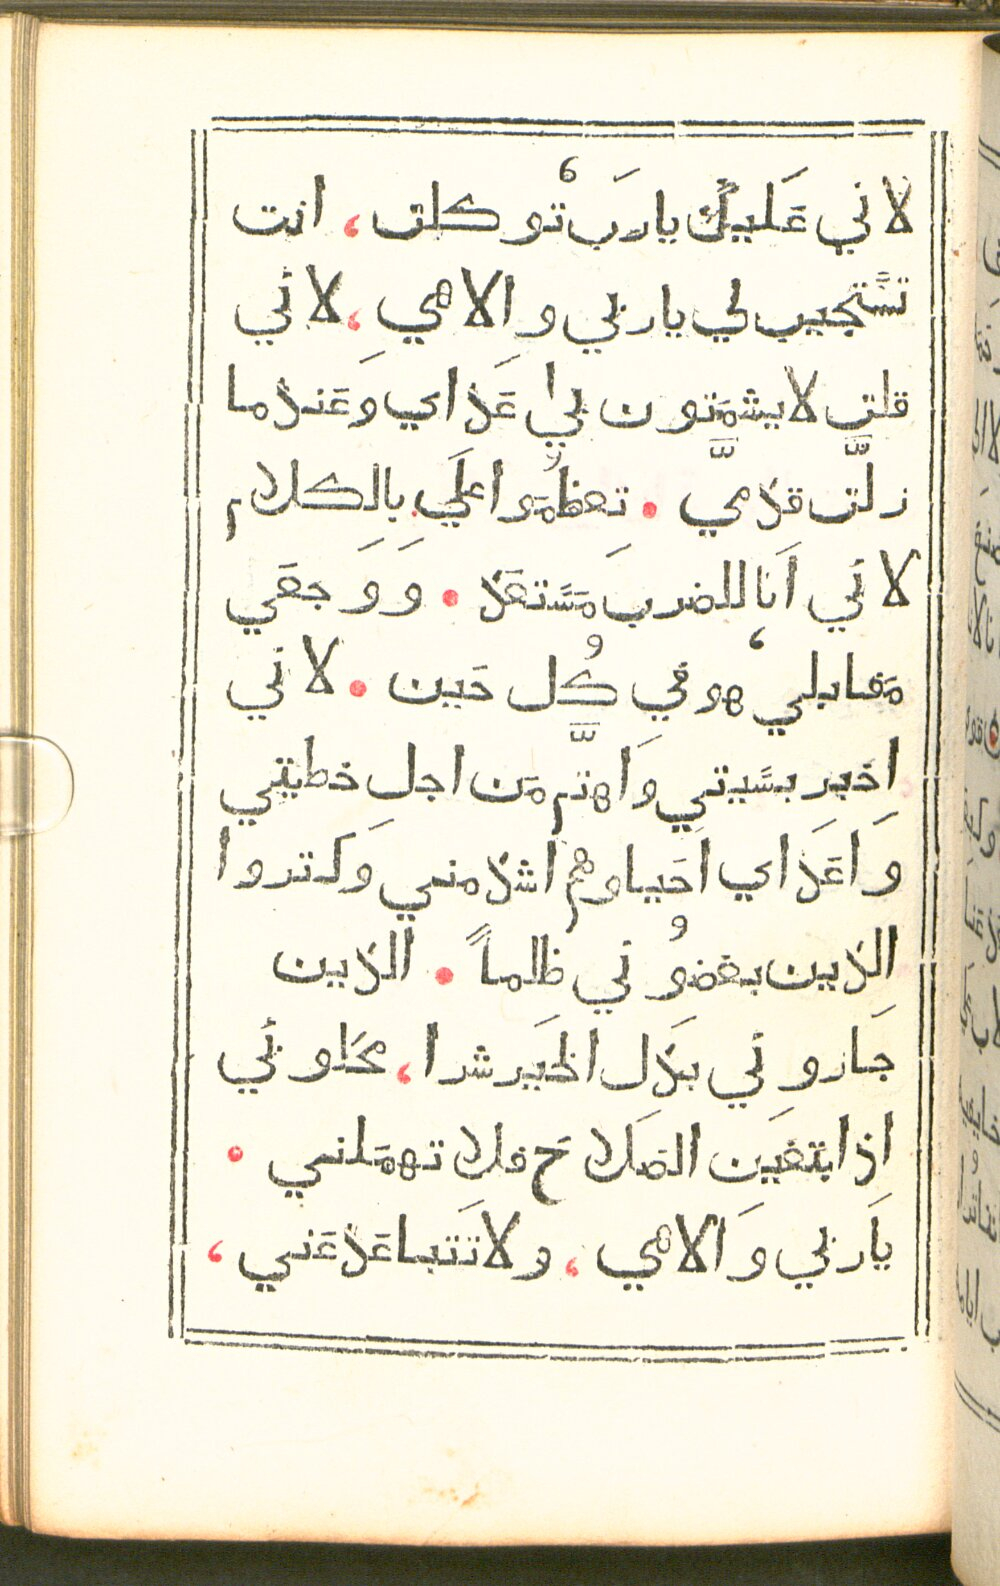 لاني عَليكَ يارَب توكلت، انت
تسَّتجيب لي ياربي والاهي، لاني
قلت لايشمَتون بي اعَداي وعَندما
زلَّت قدَّمي . تعظمُوا علَي بِالكلام
لاني اَنا للضرب مَسَّتعَد . وَوَجعَي
مَقابلي هوفي كُل حَين . لاني
اخبر بسَّيتي واهتَّم مَن اجلِ خطيتي
وَاعَداي احَيا وهم اشد منيَ وكَتروا
الدين بغضوُني ظلماً . الدين
جَاروني بدَل الخَير شرا، محَلوني
اذا ابتغَيَن الصَلاحَ فلا تهمَلني .
ياَربي وَالاهي، ولا تتَباعَد عَني،